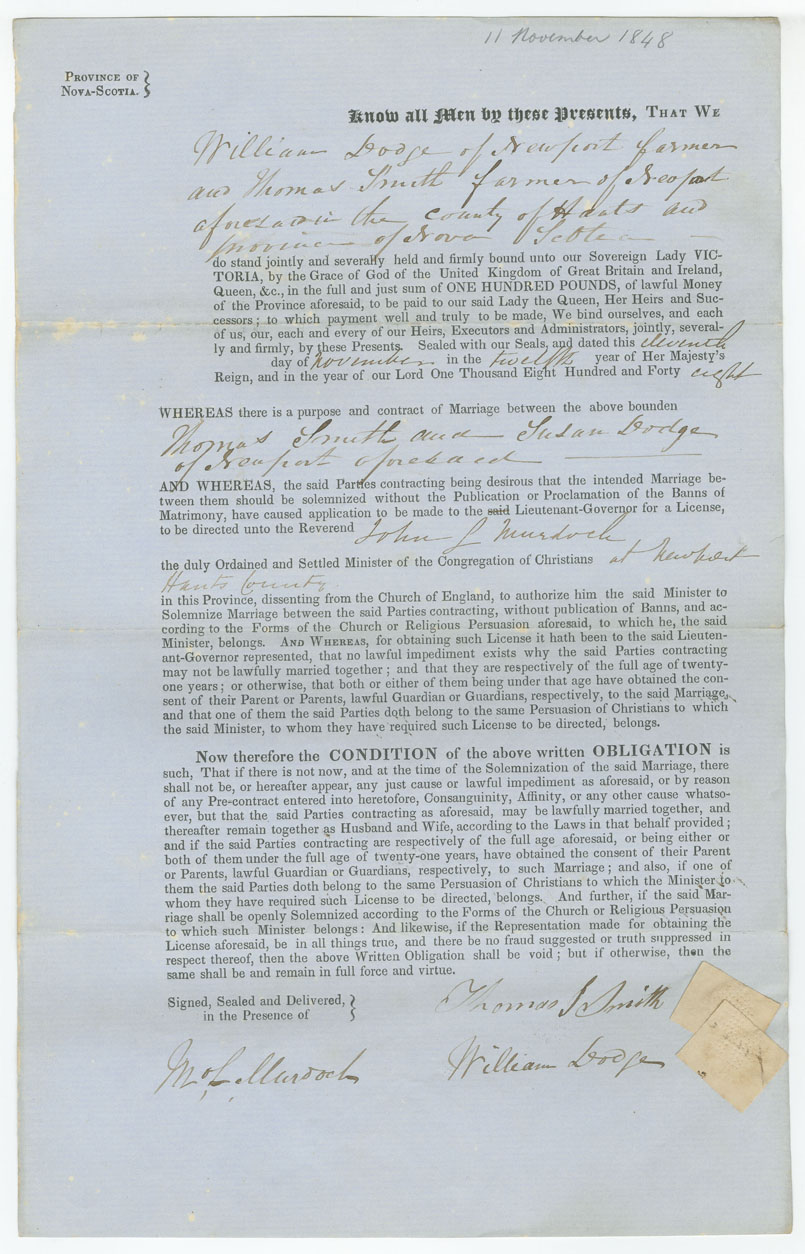 11 November 1848
PROVINCE OF
NOVA-SCOTIA.
Know all Men by these Presents, THAT WE
William Dodge of Newport farmer
and Thomas Smith farmer of Newport
aforesaid in the county of Hants and
province of Nova Scotia
do stand jointly and severally held and firmly bound unto our Sovereign Lady VIC-
TORIA, by the Grace of God of the United Kingdom of Great Britain and Ireland,
Queen, &c., in the full and just sum of ONE HUNDRED POUNDS, of lawful Money
of the Province aforesaid, to be paid to our said Lady the Queen, Her Heirs and Suc-
cessors; to which payment well and truly to be made, We bind ourselves, and each
of us, our, each and every of our Heirs, Executors and Administrators, jointly, several-
ly and firmly, by these Presents. Sealed with our Seals, and dated this eleventh
day of November in the twelfth year of Her Majesty's
Reign, and in the year of our Lord One Thousand Eight Hundred and Forty eight
WHEREAS there is a purpose and contract of Marriage between the above bounden
Thomas Smith and Susan Dodge
of Newport aforesaid
AND WHEREAS, the said Parties contracting being desirous that the intended Marriage be-
tween them should be solemnized without the Publication or Proclamation of the Banns of
Matrimony, have caused application to be made to the said Lieutenant-Governor for a License,
to be directed unto the Reverend John L Murdoch
the duly Ordained and Settled Minister of the Congregation of Christians at Newport
Hants County
in this Province, dissenting from the Church of England, to authorize him the said Minister to
Solemnize Marriage between the said Parties contracting, without publication of Banns, and ac-
cording to the Forms of the Church or Religious Persuasion aforesaid, to which he, the said
Minister, belongs. AND WHEREAS, for obtaining such License it hath been to the said Lieuten-
ant-Governor represented, that no lawful impediment exists why the said Parties contracting
may not be lawfully married together; and that they are respectively of the full age of twenty-
one years; or otherwise, that both or either of them being under that age have obtained the con-
sent of their Parent or Parents, lawful Guardian or Guardians, respectively, to the said Marriage,
and that one of them the said Parties doth belong to the same Persuasion of Christians to which
the said Minister, to whom they have required such License to be directed, belongs.
Now therefore the CONDITION of the above written OBLIGATION is
such, That if there is not now, and at the time of the Solemnization of the said Marriage, there
shall not be, or hereafter appear, any just cause or lawful impediment as aforesaid, or by reason
of any Pre-contract entered into heretofore, Consanguinity, Affinity, or any other cause whatso-
ever, but that the said Parties contracting as aforesaid, may be lawfully married together, and
thereafter remain together as Husband and Wife, according to the Laws in that behalf provided;
and if the said Parties contracting are respectively of the full age aforesaid, or being either or
both of them under the full age of twenty-one years, have obtained the consent of their Parent
or Parents, lawful Guardian or Guardians, respectively, to such Marriage; and also, if one of
them the said Parties doth belong to the same Persuasion of Christians to which the Minister to
whom they have required such License to be directed, belongs. And further, if the said Mar-
riage shall be openly Solemnized according to the Forms of the Church or Religious Persuasion
to which such Minister belongs: And likewise, if the Representation made for obtaining the
License aforesaid, be in all things true, and there be no fraud suggested or truth suppressed in
respect thereof, then the above Written Obligation shall be void; but if otherwise, then the
same shall be and remain in full force and virtue.
Signed, Sealed and Delivered,
in the Presence of
Thomas J Smith
Murdoch
William Dodge